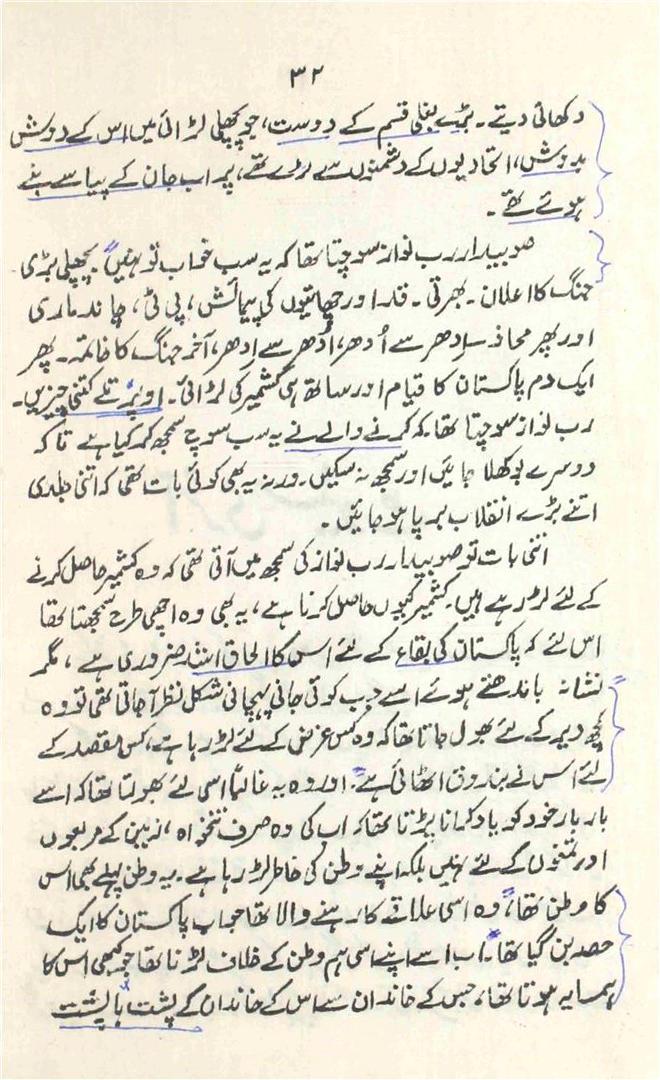 ۳۲
دکھائی دیتے۔ بڑے بغلی قسم کے دوست، جو پچھلی لڑائی میں اس کے دوش
بدوش، اتحادیوں کے دشمنوں سے لڑے تھے، پر اب جان کے پیاسے بنے
ہوئے تھے۔
صوبیدار رب نواز سوچتا تھا کہ یہ سب خواب تو نہیں۔ پچھلی بڑی
جنگ کا اعلان۔ بھرتی۔ قد اور چھاتیوں کی پیمائش، پی ٹی، چاند ماری
اور پھر محاذ۔ اِدھر سے اُدھر، اُدھر سے اِدھر، آخر جنگ کا خاتمہ۔ پھر
ایک دم پاکستان کا قیام اور ساتھ ہی کشمیر کی لڑائی۔ اوپر تلے کتنی چیزیں۔
رب نواز سوچتا تھا۔ کہ کرنے والے نے یہ سب سوچ سمجھ کر کیا ہے تاکہ
دوسرے بوکھلا جائیں اور سمجھ نہ سکیں۔ ورنہ یہ بھی کوئی بات تھی کہ اتنی جلدی
اتنے بڑے انقلاب برپا ہو جائیں۔
اتنی بات تو صوبیدار رب نواز کی سمجھ میں آتی تھی کہ وہ کشمیر حاصل کرنے
کے لئے لڑ رہے ہیں۔ کشمیر کیوں حاصل کرنا ہے، یہ بھی وہ اچھی طرح سمجھتا تھا
اس لئے کہ پاکستان کی بقاء کے لئے اس کا الحاق اشد ضروری ہے، مگر
نشانہ باندھتے ہوئے اسے جب کوئی جانی پہچانی شکل نظر آ جاتی تھی تو وہ
کچھ دیر کے لئے بھول جاتا تھا کہ وہ کس غرض کے لئے لڑ رہا ہے، کس مقصد کے
لئے اس نے بندوق اٹھائی ہے۔ اور وہ یہ غالباً اسی لئے بھولتا تھا کہ اسے
بار بار خود کو یاد کرانا پڑتا تھا کہ اب کی وہ صرف تنخواہ، زمین کے مربعوں
اور تمغوں کے لئے نہیں بلکہ اپنے وطن کی خاطر لڑ رہا ہے۔ یہ وطن پہلے بھی اس
کا وطن تھا، وہ اسی علاقے کا رہنے والا تھا جو اب پاکستان کا ایک
حصہ بن گیا تھا۔ اب اسے اپنے اسی ہم وطن کے خلاف لڑنا تھا جو کبھی اس کا
ہمسایہ ہوتا تھا، جس کے خاندان سے اس کے خاندان کے پشت ہا پشت